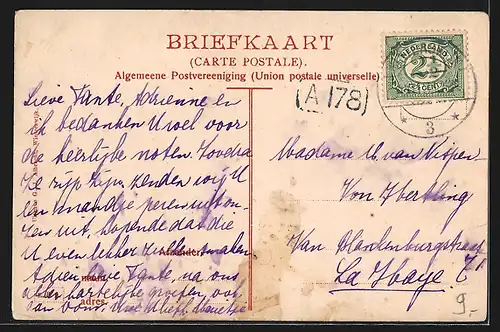 BRIEFKAART
(CARTE POSTALE).
Algemeene Postvereeniging (Union postale universelle)
NEDERLAND
2½
CENT
3
(A 178)
Lieve Tante, Adrienne en
ik bedanken U wel voor
de heerlijke noten. Zoodra
ze rijp zijn zenden wij U
een mandje peren uit on-
zen uit, hopende dat die
U even lekker zullen smaken
Afzender
Adieu lieve Tante, na ons
naam
aller hartelijke groeten, ook
adres
van
Madame U. van
Von Ybertling
Van Blankenburgstraat
La Haye
9.-